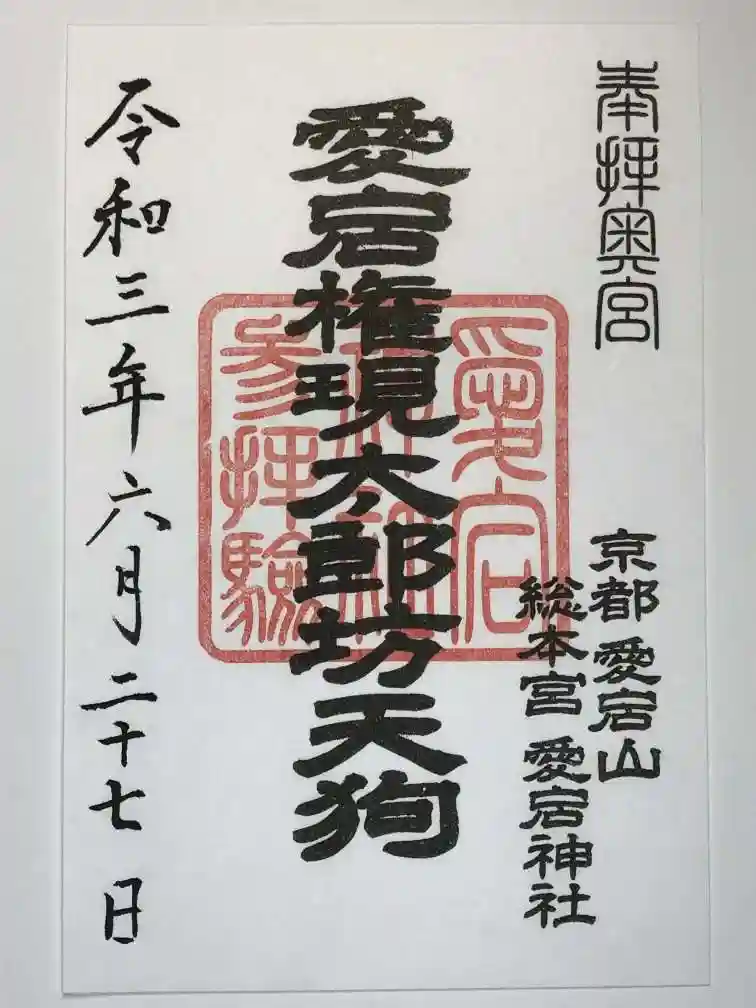 奉拝奥宮
京都愛宕山
総本宮愛宕神社
愛宕権現太郎坊天狗
愛宕
参拝験
令和三年六月二十七日